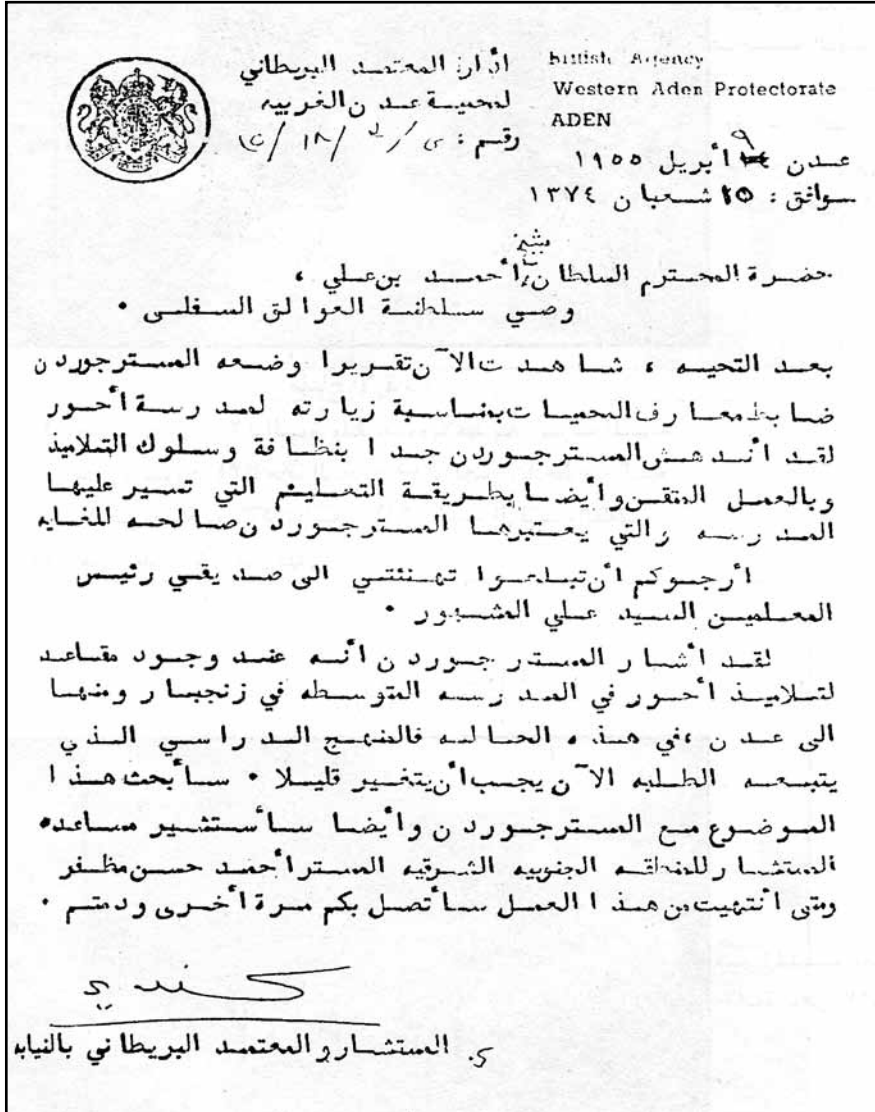 British Agency
Western Aden Protectorate
ADEN
ادارة المعتمد البريطاني
لمحمية عدن الغربيه
رقم :
عدن ٩ أبريل ١٩٥٥
موافق : ١٥ شعبان ١٣٧٤
حضرة المحترم السلطان أحمد بن علي ،
وصي سلطنة العوالق السفلى ٠
بعد التحيه ، شاهدت الآن تقريرا وضعه المسترجوردن
ضابط معارف المحميات بمناسبة زيارته لمدرسة أحور
لقد أندهش المسترجوردن جدا بنظافة وسلوك التلاميذ
وبالعمل المتقن وأيضا بطريقة التعليم التي تسير عليها
المدرسه والتي يعتبرها المسترجوردن صالحه للغايه
أرجوكم أن تبلغوا تهنئتي الى صديقي رئيس
المعلمين السيد علي المشهور ٠
لقد أشار المستر جوردن أنه عند وجود مقاعد
لتلاميذ أحور في المدرسه المتوسطه في زنجبار ومنها
الى عدن ،في هذه الحاله فالمنهج الدراسي الذي
يتبعه الطلبه الآن يجب أن يتغير قليلا ٠ سأبحث هذا
الموضوع مع المسترجوردن وأيضا سأستشير مساعد
المستشار للمنطقه الجنوبيه الشرقيه المستر أحمد حسن مظفر
ومتى أنتهيت من هذا العمل سأتصل بكم مرة أخرى ودمتم ٠
كندي
المستشار والمعتمد البريطاني بالنيابه